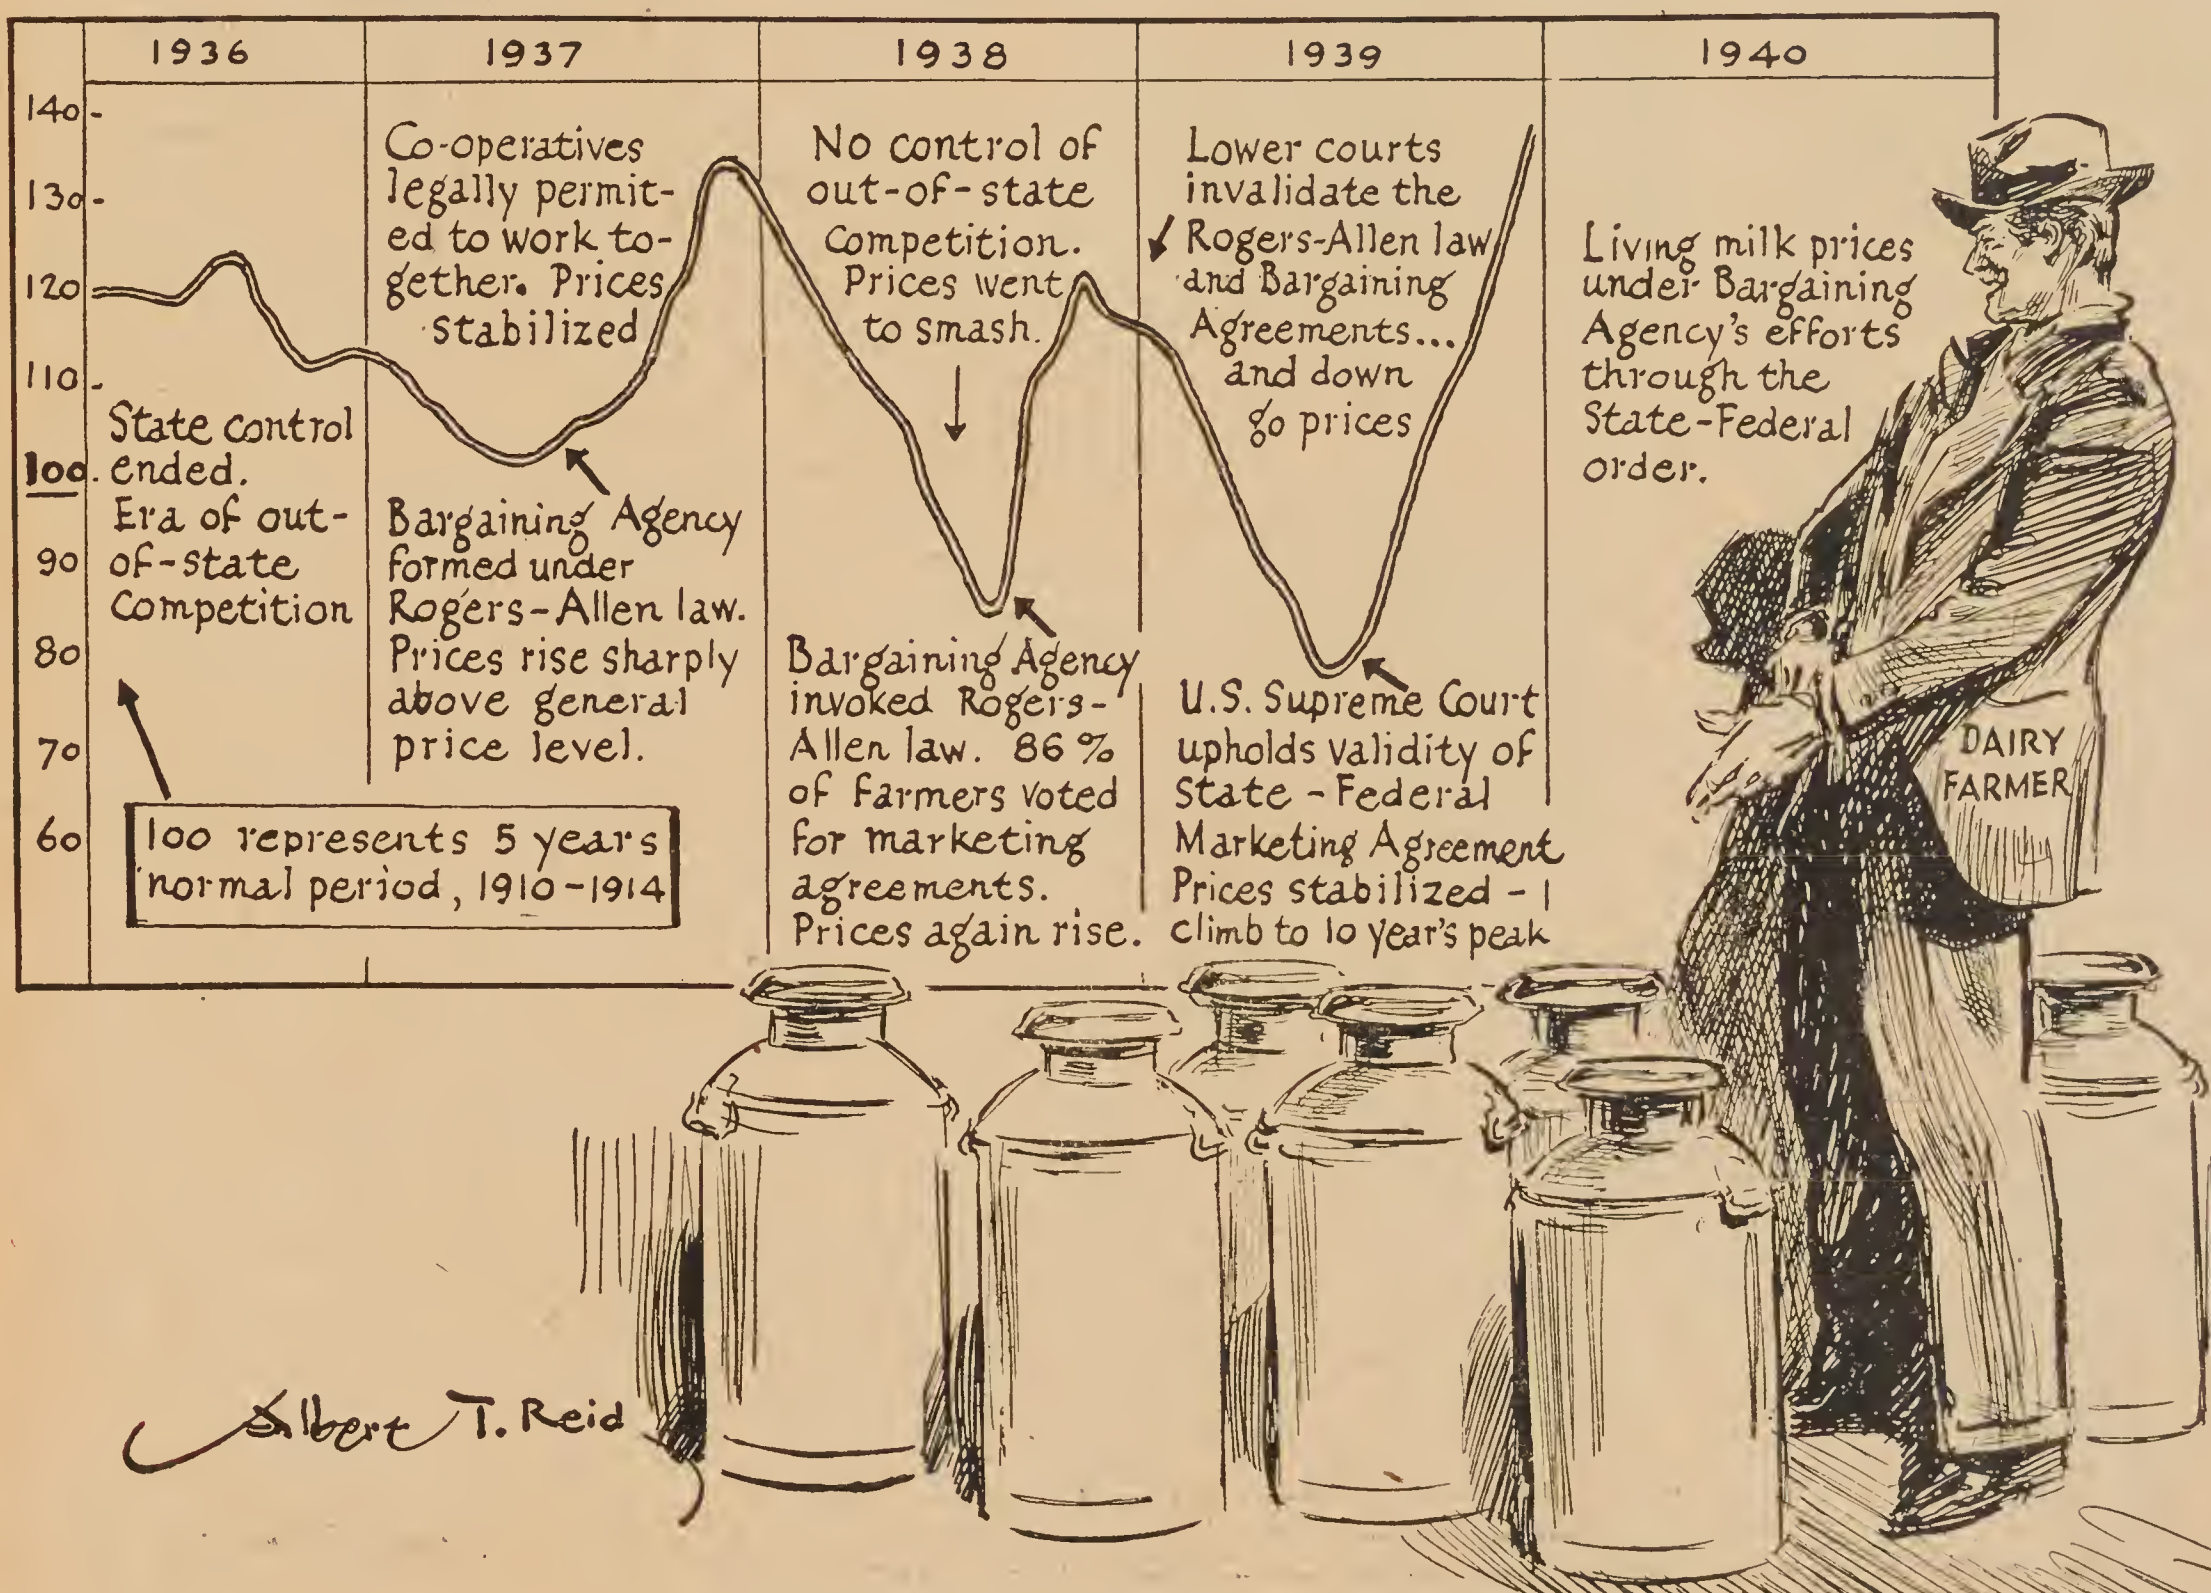 1936
1937
1938
1939
1940
140
130
120
110
100
90
80
70
60
State control
ended.
Era of out-
of-state
Competition
100 represents 5 years
normal period, 1910-1914
Co-operatives
legally permit-
ed to work to-
gether. Prices
stabilized
Bargaining Agency
formed under
Rogers-Allen law.
Prices rise sharply
above general
price level.
No control of
out-of-state
Competition.
Prices went
to smash.
Bargaining Agency
invoked Rogers-
Allen law. 86%
of Farmers voted
for marketing
agreements.
Prices again rise.
Lower courts
invalidate the
Rogers-Allen law
and Bargaining
Agreements...
and down
go prices
U.S. Supreme Court
upholds validity of
State-Federal
Marketing Agreement
Prices stabilized -
climb to 10 year's peak
Living milk prices
under Bargaining
Agency's efforts
through the
State-Federal
order.
DAIRY
FARMER
Albert T. Reid